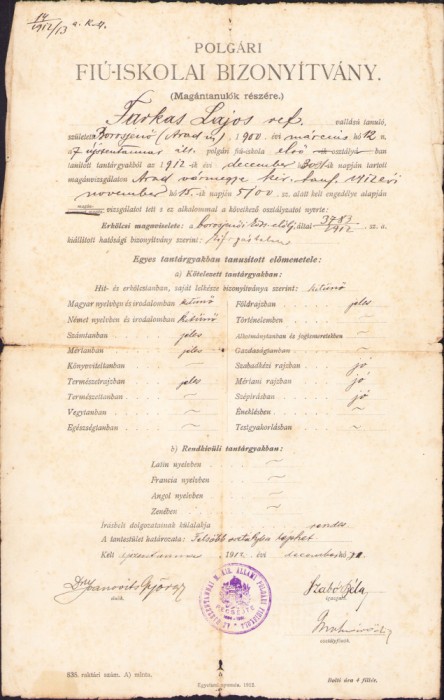 14/1912/13 u. K. H.
POLGÁRI
FIÚ-ISKOLAI BIZONYÍTVÁNY.
(Magántanulók részére.)
Farkas Lajos ref. vallású tanuló,
született Borosjenő (Arad m), 1900 évi március hó 12 n.
a polgári fiú-iskola első osztályában
tanított tantárgyakból az 1912-ik évi december hó napján tartott
magánvizsgálaton Arad vármegye kir. tanf. 1912 évi
november hó 15-ik napján 5100 sz. alatt kelt engedélye alapján
magán- vizsgálatot tett s ez alkalommal a következő osztályzatot nyerte:
Erkölcsi magaviselete: a borosjenői közs. elölj. által 3783/1912 sz. a.
kiállított hatósági bizonyítvány szerint:
Egyes tantárgyakban tanusított előmenetele:
a) Kötelezett tantárgyakban:
Hit- és erkölcstanban, saját lelkésze bizonyítványa szerint: kitünő
Magyar nyelvben és irodalomban kitünő
Német nyelvben és irodalomban kitünő
Számtanban jeles
Mértanban jeles
Könyvviteltanban ~
Természetrajzban jeles
Természettanban ~
Vegytanban ~
Egészségtanban ~
Földrajzban jeles
Történelemben ~
Alkotmánytanban és jogismeretekben ~
Gazdaságtanban ~
Szabadkézi rajzban jó
Mértani rajzban jó
Szépírásban jó
Éneklésben ~
Testgyakorlásban ~
b) Rendkívüli tantárgyakban:
Latin nyelvben ~
Francia nyelvben ~
Angol nyelvben ~
Zenében ~
Írásbeli dolgozatainak külalakja rendes
A tantestület határozata: Felsőbb osztályba léphet
Kelt 1912. évi december hó
Ivanovits György
Szabó Béla
igazgató.
osztályfőnök.
838. raktári szám. A) minta.
Egyetemi nyomda, 1912.
Bolti ára 4 fillér.